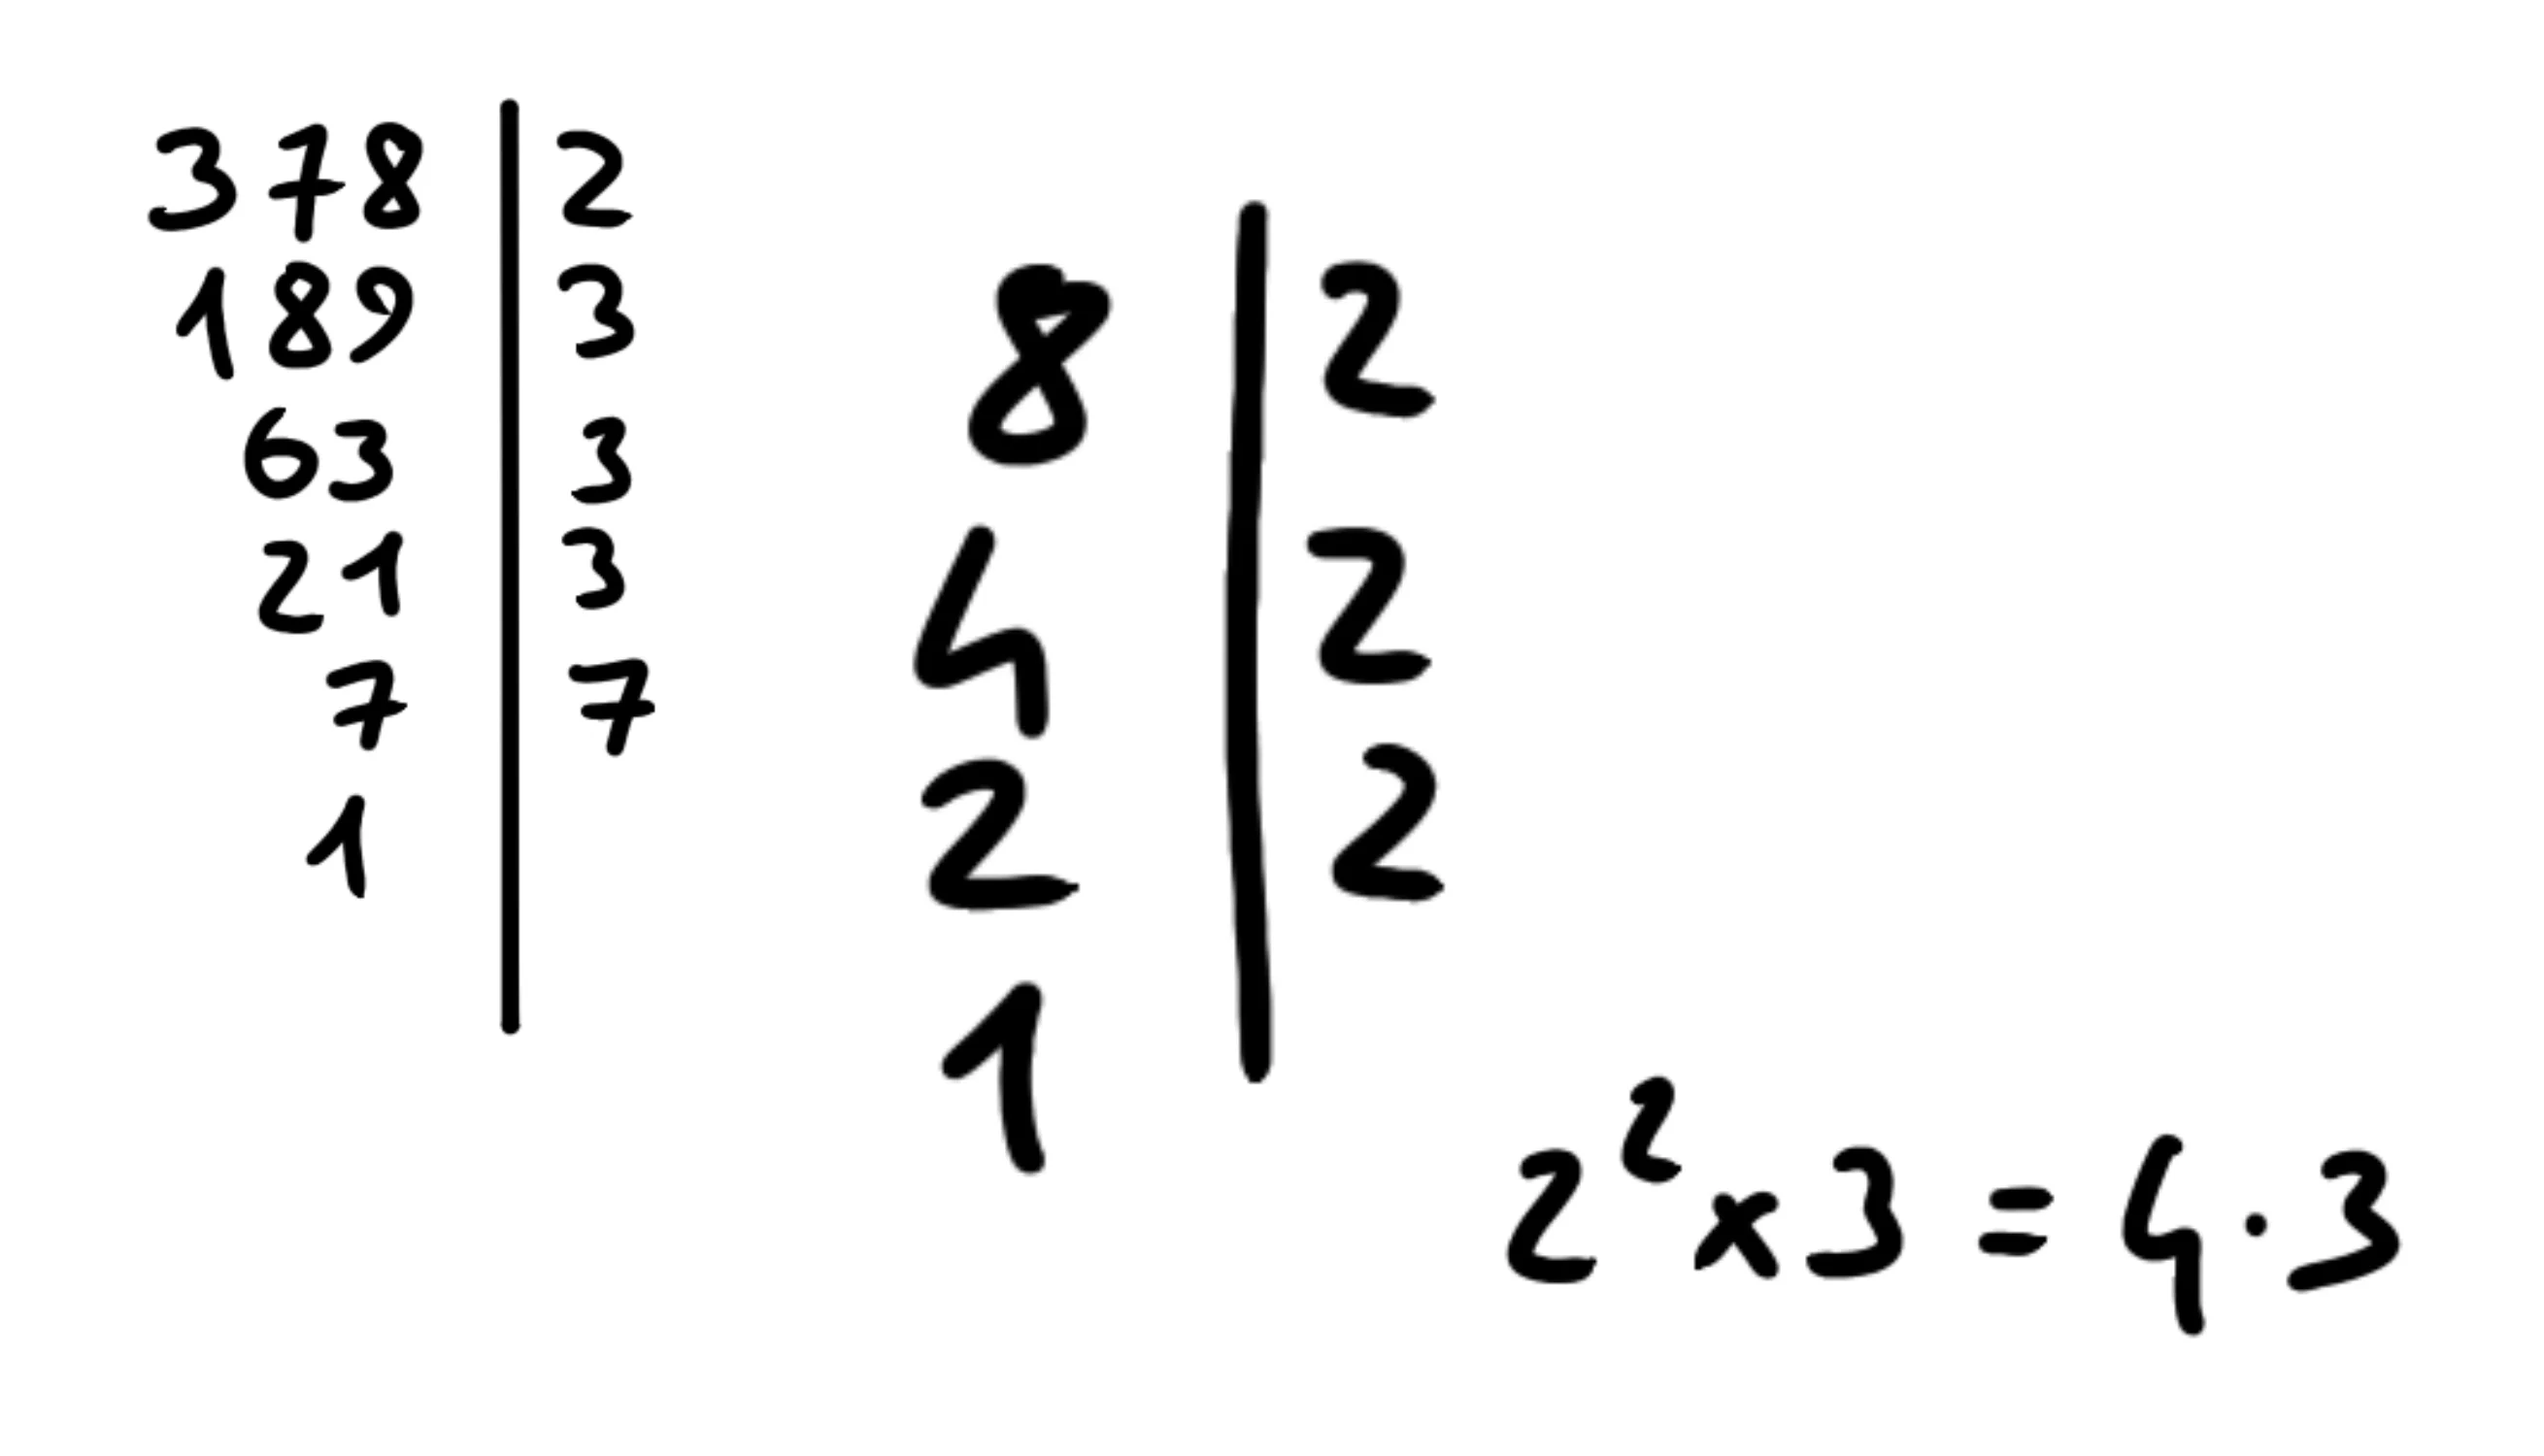 378 | 2
189 | 3
63 | 3
21 | 3
7 | 7
1 |
8 | 2
4 | 2
2 | 2
1 |
2² x 3 = 4 · 3